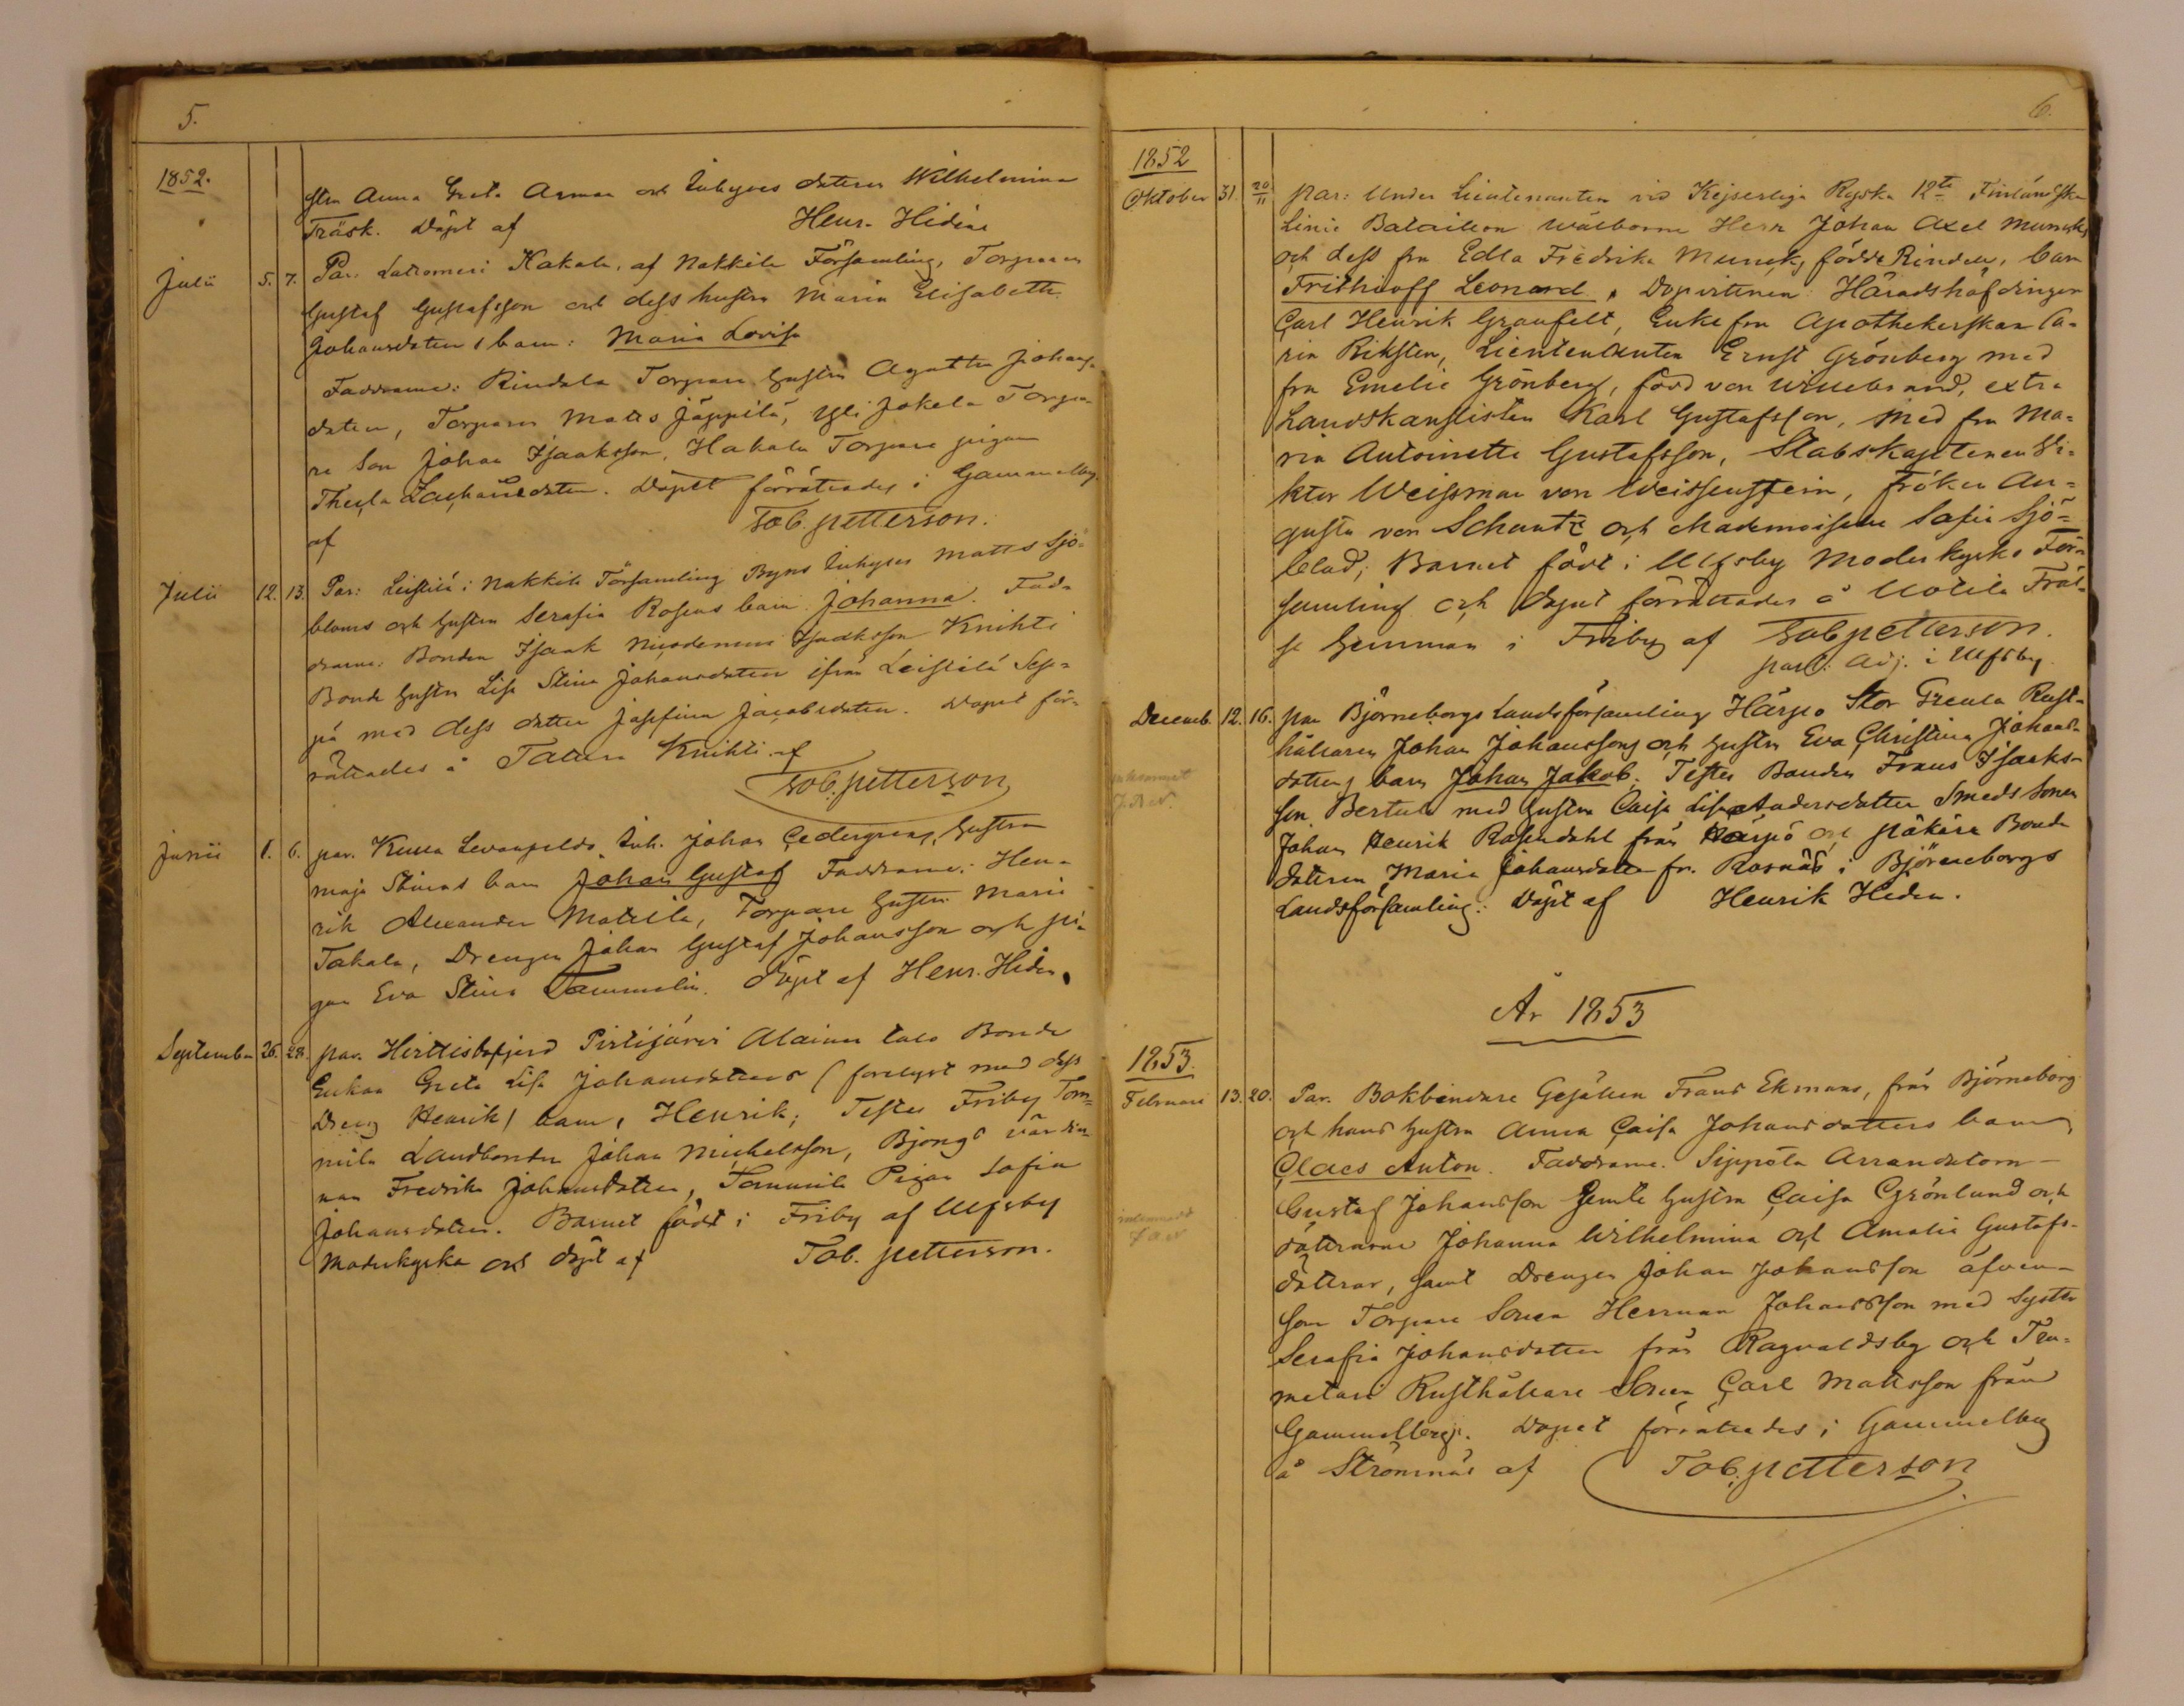 5.
1852.
stru Anna Greta Asman och Inhyses dottren Wilhelmina
Träsk. Döpt af Henr. Hidén
Julii 5. 7. Par: Lattomeri Hakala, af Nakkila Församling, Torparen
Gustaf Gustafsson och dess hustru Maria Elisabeth
Johansdotters barn: Maria Lovisa
Faddrarne: Rindala Torpare hustru Agatha Johans-
dotter, Torparen Matts Jäppilä, Yli Jokela Torpa-
re Son Johan Isaaksson, Hakala Torpare pigan
Thecla Zachariedotter. Döpet förrättades i Gammelby
af Tob. Petterson.
Julii 12. 13. Par: Leistilä i Nakkila Församling Byns Inhyses Matts Sjö-
bloms och hustru Serafia Rosens barn Johanna. Fad-
drarne: Bonden Isaak Nicodemus Isaaksson Knihti
Bonde hustru Lisa Stina Johansdotter ifrån Leistilä Sep-
pä med dess dotter Josefina Jacobsdotter. Dopet för-
rättades å Tattara Knihti af
Tob. Petterson
Junii 1. 6. par. Kumo Levanpelds Inh. Johan Cedergrens, hustru
Maja Stinas barn Johan Gustaf Faddrarne: Hen-
rik Alexander Mattila, Torpare hustru Maria
Takala, Drengen Johan Gustaf Johansson och pi-
gan Eva Stina Tammelin. Döpt af Henr. Hiden
September 26. 28. par. Hirttisbofjerd Pirttijärvi Alainen talo Bonde
Enkan Greta Lisa Johansdotters (forelyst med dess
Dreng Henrik) barn, Henrik; Testes Friby Tom-
mila Landbonden Johan Michelsson, Bjongs värdin-
nan Fredrika Johansdotter, Tommila Pigan Sofia
Johansdotter. Barnet födt i Friby af Ulfsby
Moderkyrka och döpt af Tob. Petterson.
6.
1852
Oktober 31. 20/11 par: Under Lieutenanten vid Kejserliga Ryska 12te Finländska
Linie Batailion Wälborne Herr Johan Axel Muncks
och dess fru Edla Fredrika Munck, födde Rindell, barn
Frithioff Leonard. Dopvittnen: Häradshöfdingen
Carl Henrik Granfelt, Enkefru Apothekerskan Ca-
rin Riksten, Lieutenanten Ernst Grönberg med
fru Emelie Grönberg, född von Willebrand, extra
Landskanslisten Karl Gustafsson, med fru Ma-
ria Antoinette Gustafsson, Stabskaptenen Vi-
ktor Weissman von Weissenstein, fröken Au-
gusta von Schantz och Mademoiselle Sofia Sjö-
blad; Barnet födt i Ulfsby Moderkyrko För-
samling och Döpet förrättades å Uotila Fräl-
se Hemman i Friby af Tob. Petterson.
past: Adj. i Ulfsby
Decemb. 12. 16. par Björneborgs Landsförsamling Härpö Stor Grenla Rust-
hållaren Johan Johanssons och hustru Eva Christina Johans-
dotters, barn Johan Jakob. Testes Bonden Frans Isaaks-
son Bertula med hustru Caisa Lisa Andersdotter Smeds Sonen
Johan Henrik Rosendahl från Härpö och Bonde
dottren Maria Johansdotter fr. Rosnäs i Björneborgs
Landsförsamling. Döpt af Henrik Heden.
År 1853
1853.
Februari 13. 20. Par. Bokbindare Gesällen Frans Ekmans, från Björneborg
och hans hustru Anna Caisa Johansdotters barn
Claes Anton. Faddrarne. Sippola Arrendatorn
Gustaf Johansson Jemte hustru Caisa Grönlund och
döttrarne Johanna Wilhelmina och Amalia Gustafs-
döttrar, samt Drengen Johan Johansson äfven-
som Torpare Sonen Herrman Johansson med Syster
Serafia Johansdotter från Ragvaldsby och Tra-
metari Rusthållare Sonen Carl Mattsson från
Gammelby. Dopet förrättades i Gammelby
å Strömnäs af Tob. Petterson